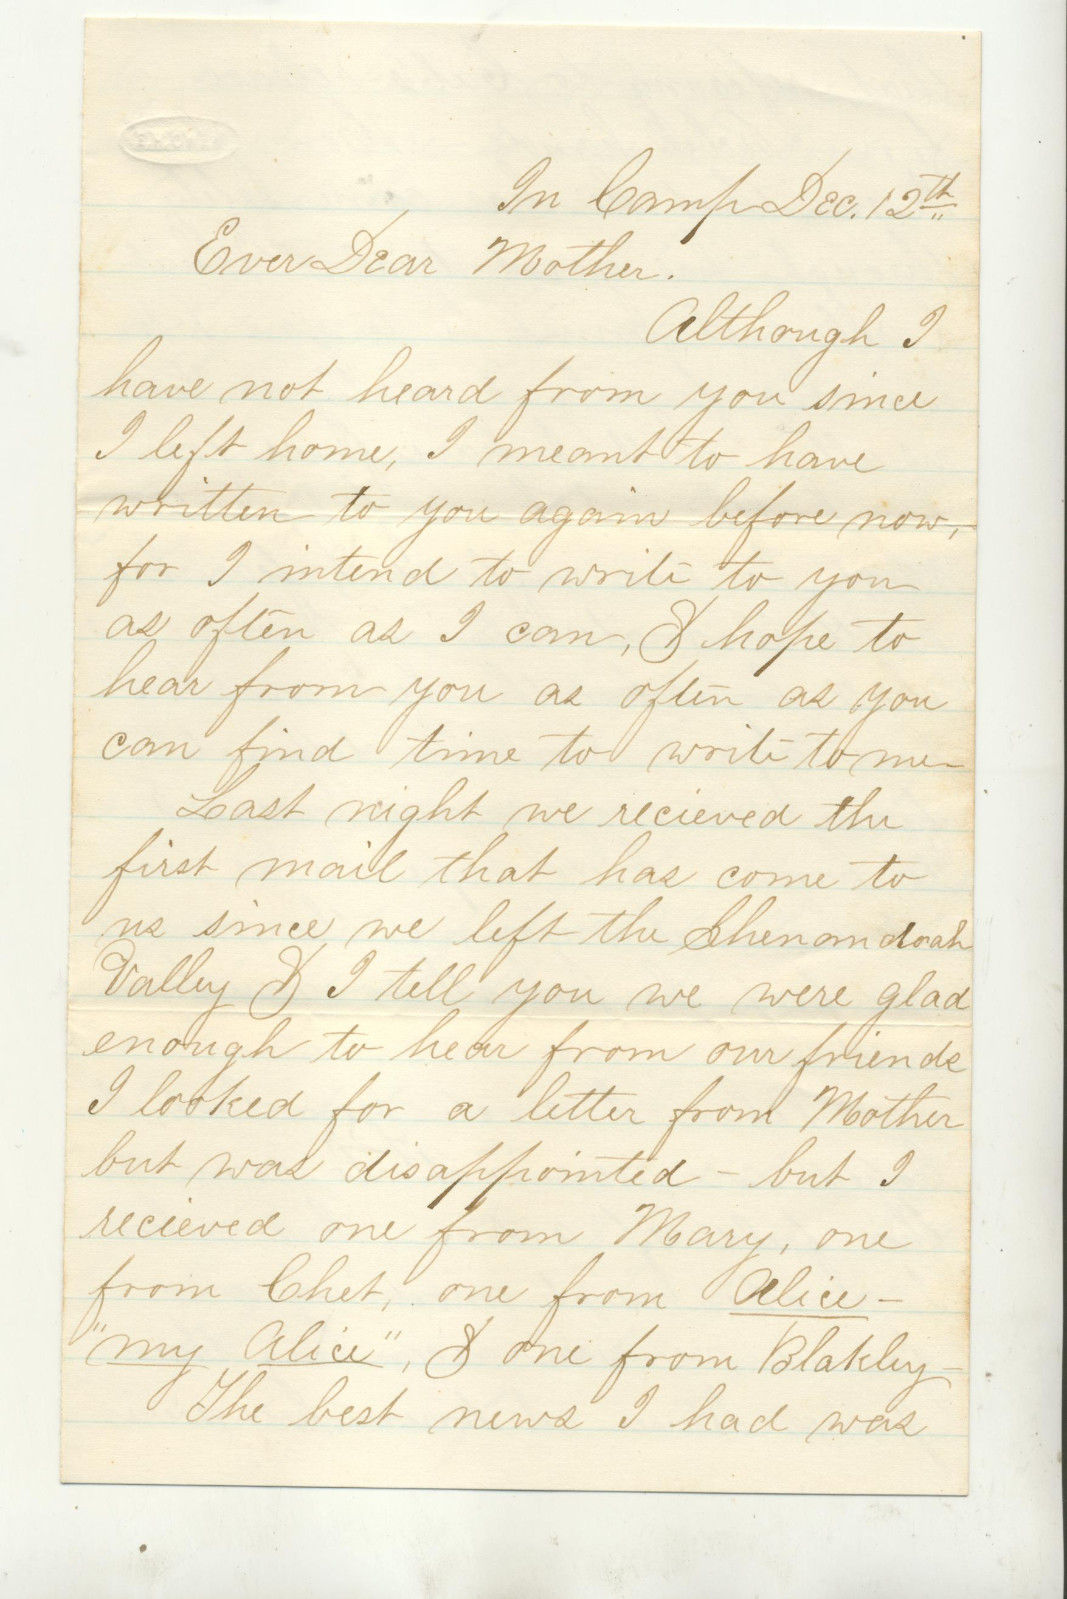 In Camp Dec. 12th
Ever Dear Mother.
Although I
have not heard from you since
I left home, I meant to have
written to you again before now,-
for I intend to write to you
as often as I can, & hope to
hear from you as often as you
can find time to write to me-
Last night we recieved the
first mail that has come to
us since we left the Shenandoah
Valley & I tell you we were glad
enough to hear from our friends
I looked for a letter from Mother
but was disappointed - but I
recieved one from Mary, one
from Chet, one from Alice -
"my Alice", & one from Blakley-
The best news I had was